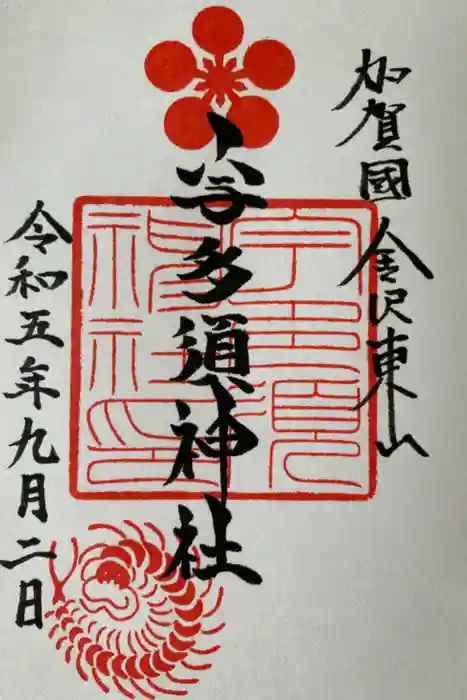 加賀國 金沢東山
宇多須神社
令和五年九月二日